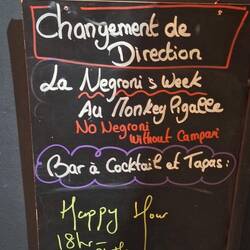 Changement de
Direction
La Negroni's Week
Au Monkey Pigalle
No Negroni
Without Campari
Bar à Cocktail et Tapas:
Happy Hour
18hr-